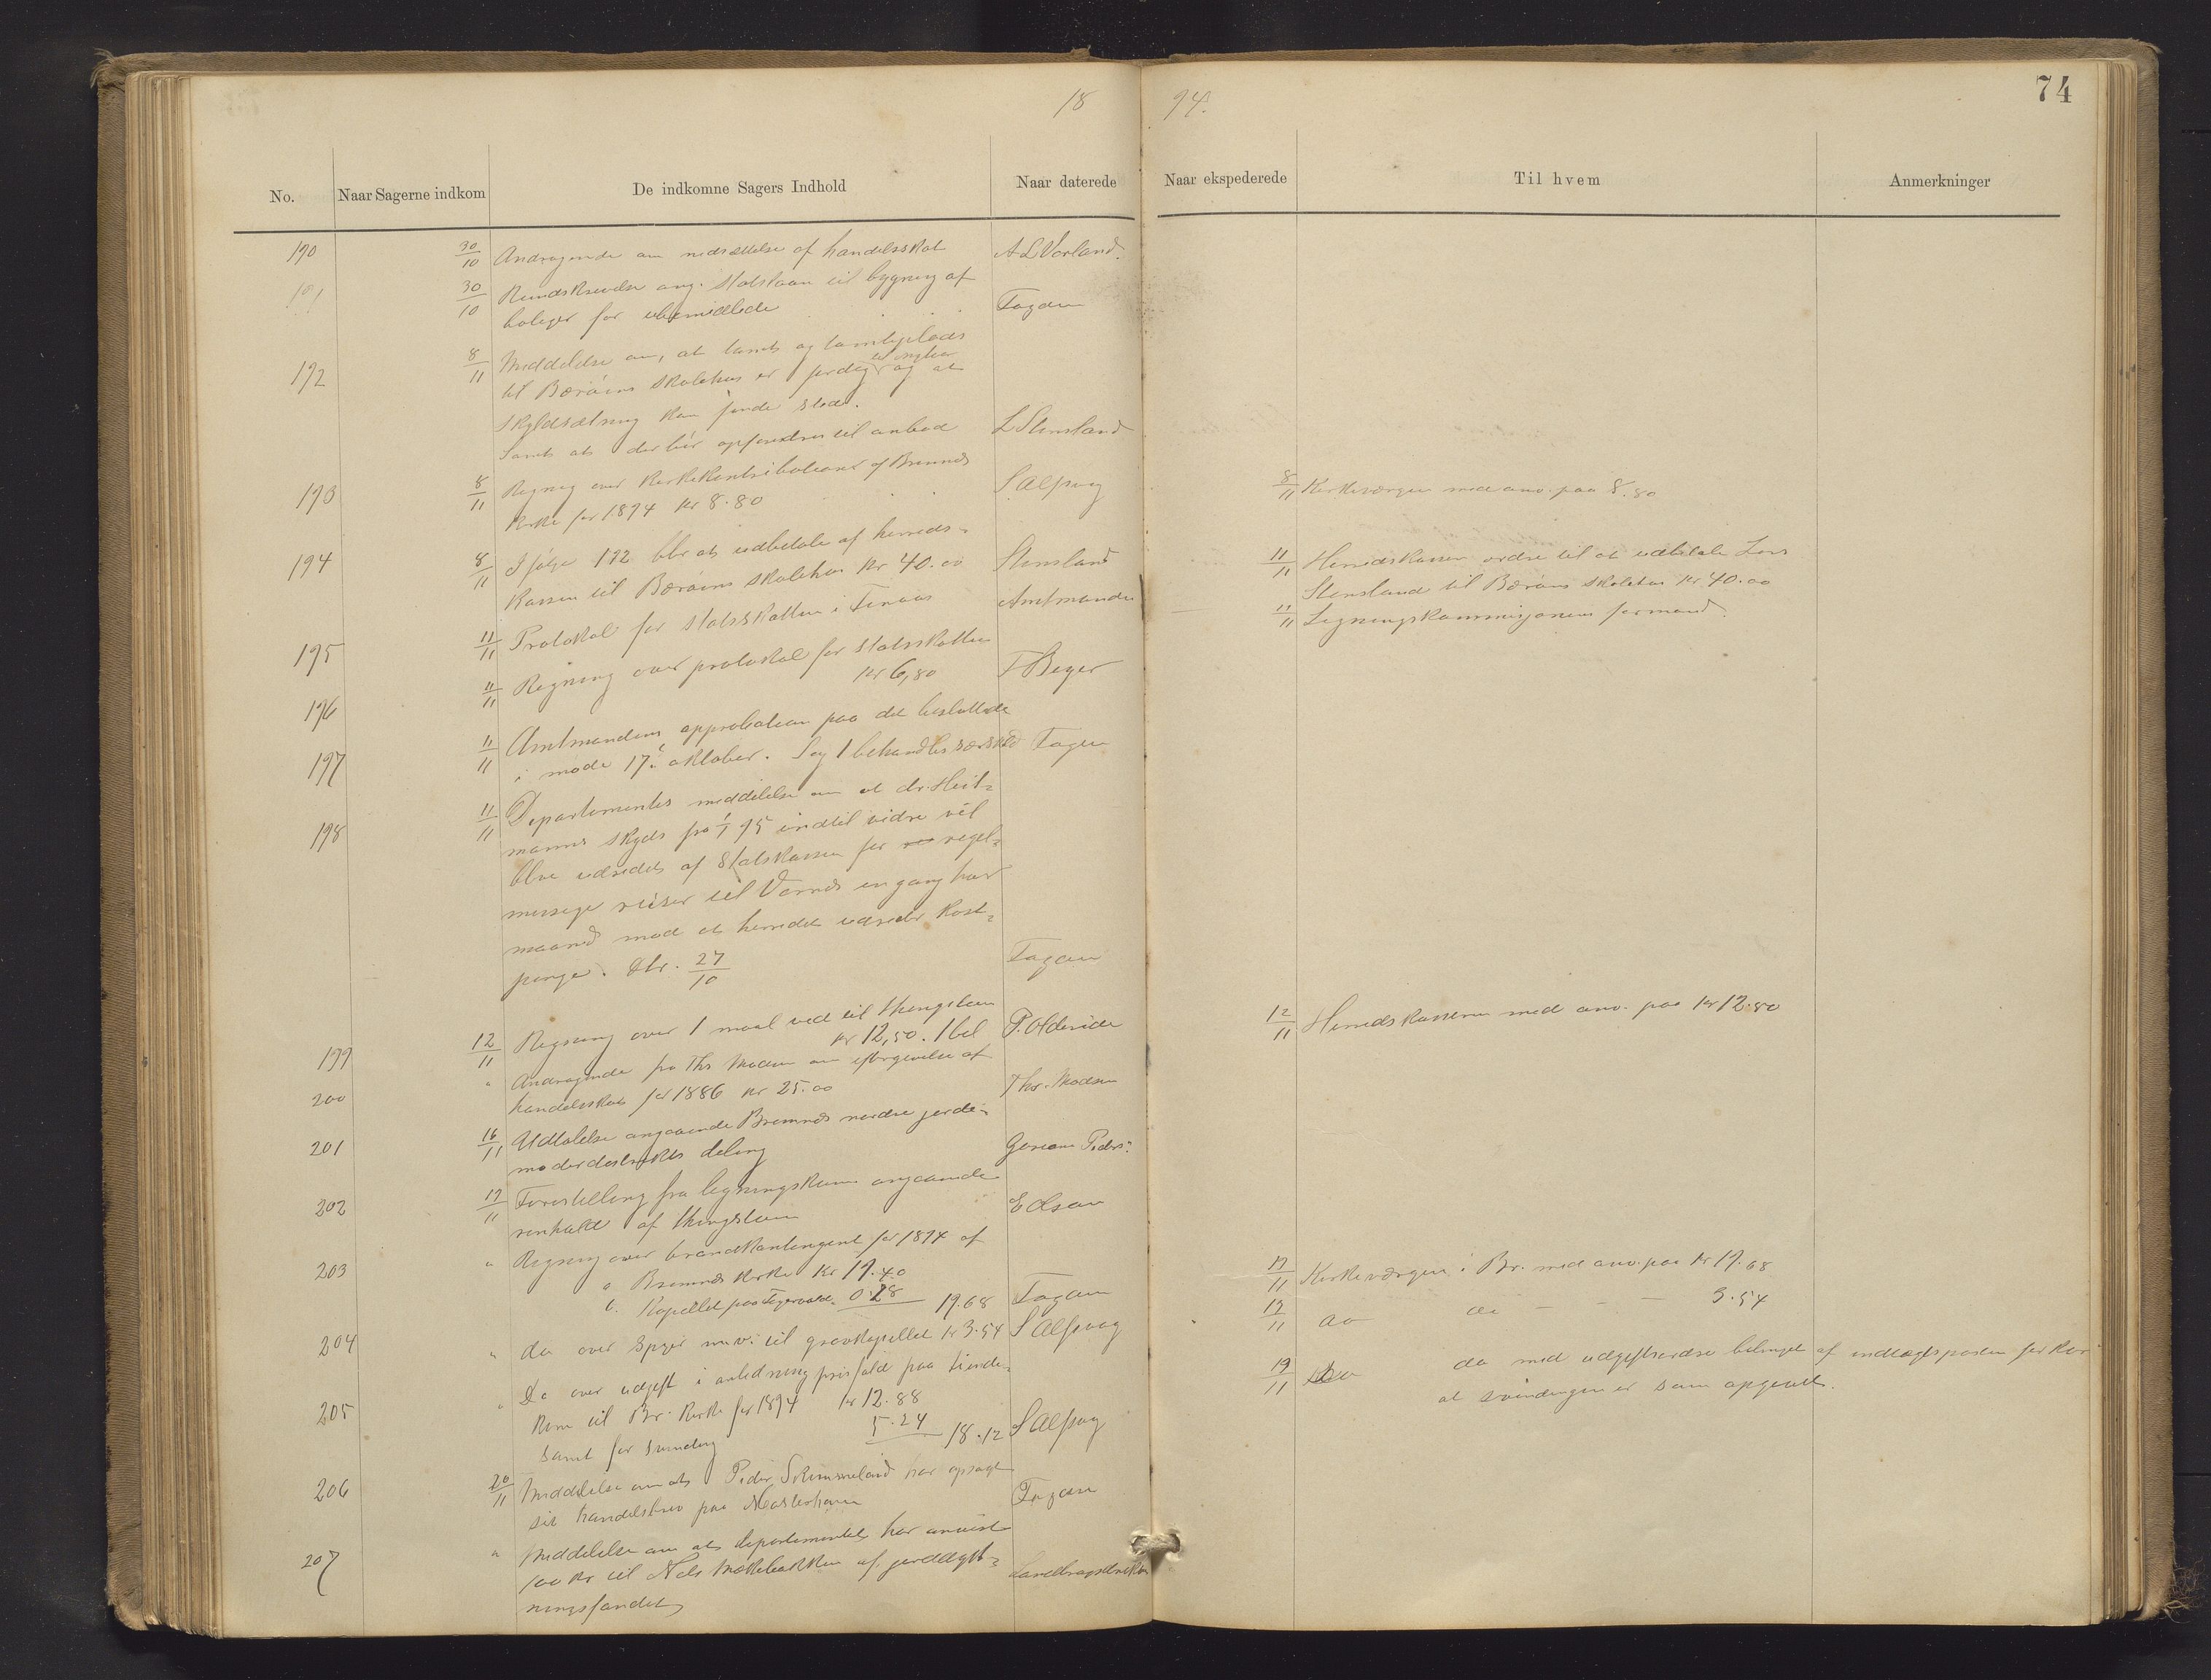 18 94.
74
No. Naar Sagerne indkom De indkomne Sagers Indhold Naar daterede Naar ekspederede Til hvem Anmerkninger
190 30/10 Andragende om nedsættelse af handelsskat A L Vorland.
191 30/10 Rundskrivelse ang. statslaan til bygning af
boliger for ubemidlede Fogden
192 8/11 Meddelelse om, at tomt og
til Børøens skolehus er færdig og at
skyldsætning kan finde sted.
Samt at der bør opfordres til anbud L Stensland
193 8/11 Regning over Kirkekontributioner af Bremnes
Kirke for 1894 kr 8.80 S. Alsvog
8/11 Kirkeværgen med anv. paa 8.80
194 8/11 Ifølge 192 bør at udbetale af herreds-
kassen til Børøens skolehus kr 40.00 Stensland
11/11 Herredskassen ordre til at udbetale Lars
Stensland til Børøens skolehus kr 40.00
195 11/11 Protokol for statsskatten i Finaas Amtmanden
11/11 Ligningskommisjonens formand.
196 11/11 Regning over protokol for statsskatten
kr 6,80 F Beyer
197 11/11 Amtmandens approbation paa det besluttede
i møde 17de oktober. Sag 1 behandles særskild Fogden
198 11/11 Departementets meddelelse om at dr. Heit-
manns skyds fra 1/1 95 indtil vidre vil
blive udredet af Statskassen for regel-
messige reiser til Bømmel en gang hver
maaned mod at herredet udreder kost-
penge. Skr. 27/10 Fogden
199 12/11 Regning over 1 maal ved til thingstuen
kr 12,50. 1 bil P. Oldervide
12/11 Herredskasseren med anv. paa kr 12.50
200 " Andragende fra Ths Madsen om eftergivelse af
handelsskat for 1886 kr 25.00 Ths. Madsen
201 16/11 Udtalelse angaaende Bremnes nordre jorde-
moderdistrikts deling
202 17/11 Forestilling fra ligningskom. angaaende
renhold af thingstuen E Olsen
203 " Regning over brandkontingent for 1894 af
a Bremnes kirke kr 19.40
b. Kapellet paa 0.28 19.68 Fogden
17/11 Kirkeværgen i Br. med anv. paa kr 19.68
204 " do over Spger m.v. til gravkapellet kr 3.54 S Alsvaag
19/11 do do - - - 3.54
205 " Do over udgift i anledning prisfald paa tiende-
korn til Br. kirke for 1894 kr 12.88
samt for svinding 5.24 18.12 S Alsvog
19/11 do do med udgiftsordre beløpet af indtægtsposten for kor
at svindingen er som opgivet.
206 20/11 Meddelelse om at Peder Skimmeland har opsagt
sit handelsbrev paa Mosterhavn Fogden
207 " Meddelelse om at departementet har anvist
100 kr til Nils Mækebakken af jorddyrk-
ningsfondet Landbrugsdirektør